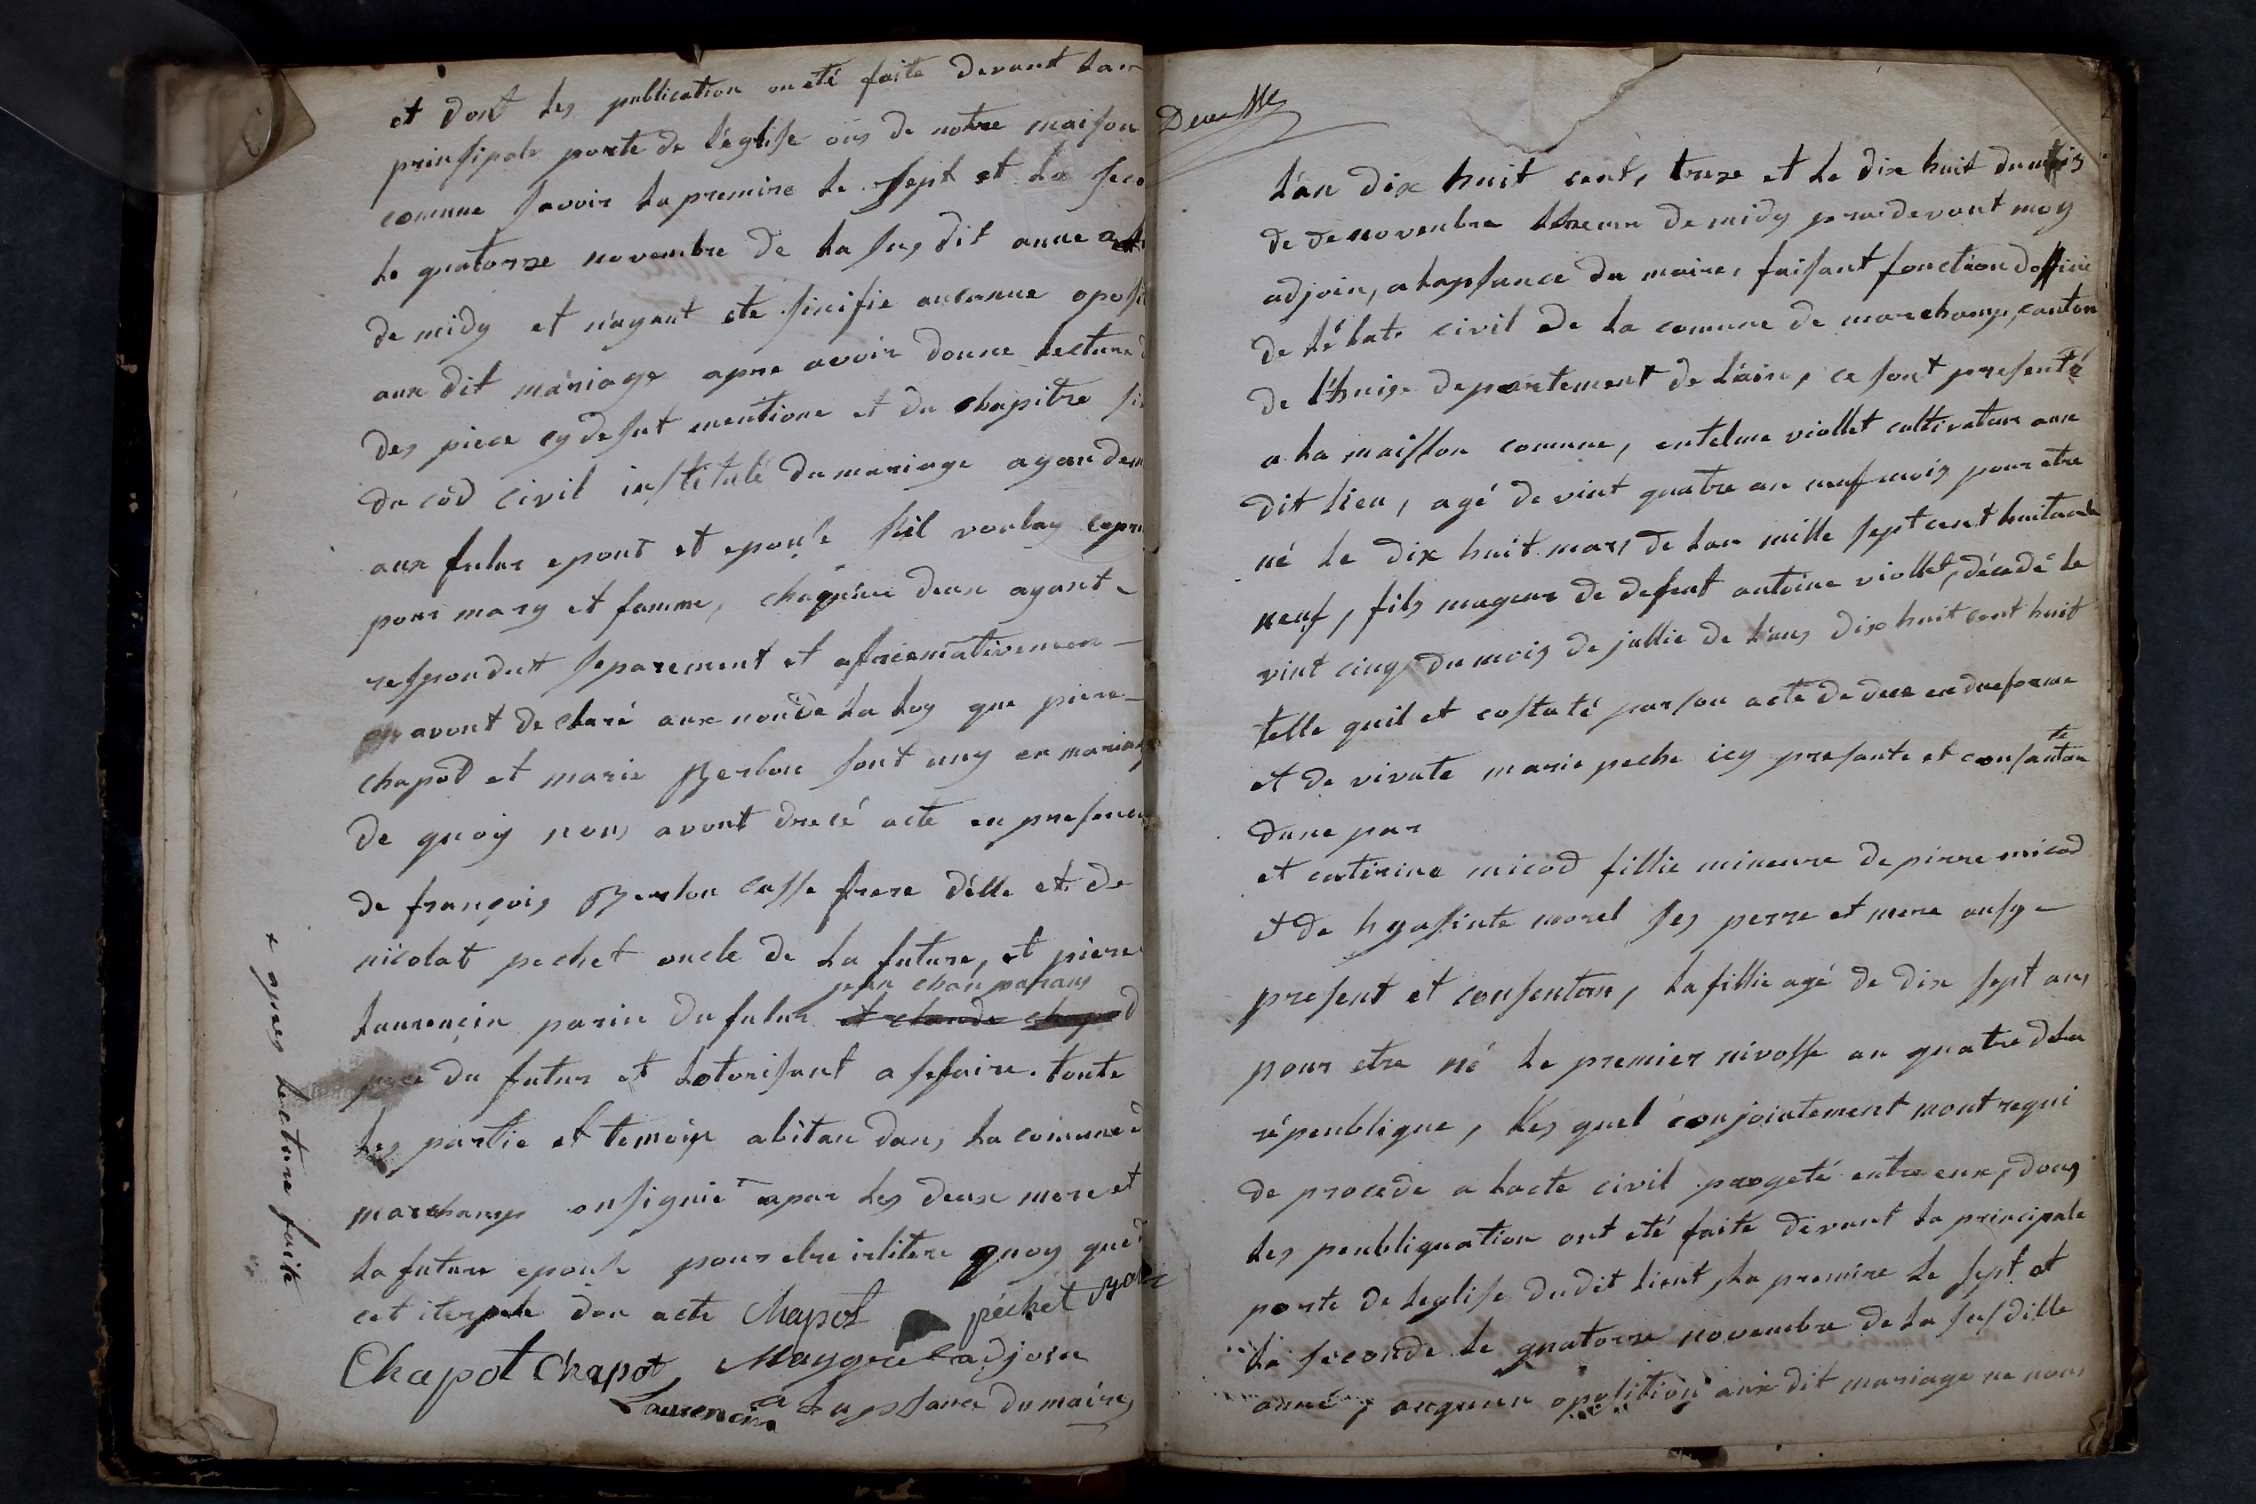 et dont les publication on eté faite devant la
prinsipale porte de l'eglise ou's de notre maison
comune savoir la premire le sept et la seco
le quatorze novembre de la sus dit anne a
de midy et n'ayant ete sinifie aucunne oposi
aux dit mariage apre avoir donne lecture d
des piece cy desut mentione et du chapitre si
du còd civil institulé du mariage ayan dem
aux futur epout et epouse sil voulay se pr
pour mary et famme, chaqu'un deux ayant
respondut separement et afiremativemen
avont declaré aux nom de la loy que piere
chapot et marie Berlon sont uny en mariag
de quoy nous avont dresé acte en presence
de françois Berlon casse frere d'elle et de
nicolat pechet oncle de la future, et piere
jean chan parans
laurençin parin du futur et claude chapod
pere du futur et lotorisant a sefaire toute
les partie et temoin abitan dans la comune d
marchamp on signie apar les deux mere et
la future epouse pour etre irlitere quoy que d
cet iterpele don acte Chapot péchet
Chapot Chapot Maygre adjoin
Laurencin a lapsance du maire
+ apres lecture faite
Deux
L'an dix huit cent, treze et le dix huit du mois
de de novembre lheure de midy par devant moy
adjoin, a lapsance du maire, faisant fonction doffisie
de l'é tats civil de la comune de marchamp, canton
de l'huise departement de l'ain, ce sont presenté
a la maisson comune, entelme viollet cultivateur aux
dit lieu, agé de vint quatre an neuf mois pour etre
né le dix huit mars de lan mille sept cent huitante
neuf, fils mageur de defeut antoine viollet, décedé le
vint cinq du mois de jullie de l'ans dix huit cent huit
telle quil et costaté par son acte de dece en due forme
te
et de vivate marie peche icy presante et consantan
dune par
et catirine micod fillie mineure de pirre micod
et de hyasinte morel ses perre et mere ausy
present et consentan, la fillie agé de dix sept ans
pour etre né le premier nivosse an quatre de la
répeublique, les quel conjointement mont requi
de procede a lacte civil progeté entre eux, dons
les peubliquation ont eté faite devant la principale
porte de leglise du dit lieut, la premire le sept et
la seconde le quatorze novembre de la susditte
anné, auqueun oposition aux dit mariage ne nous